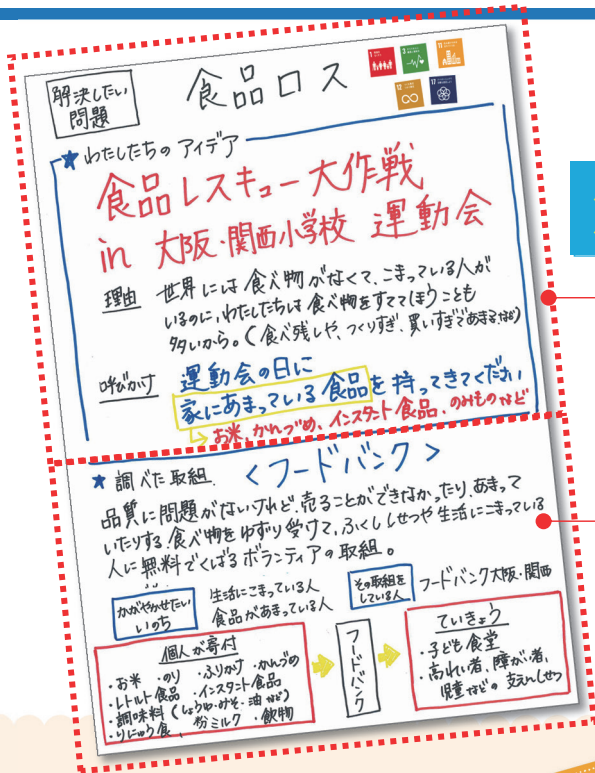 解決したい
問題
食品ロス
★わたしたちのアイデア
食品レスキュー大作戦
in 大阪・関西小学校 運動会
理由 世界には食べ物がなくて、こまっている人が
いるのに、わたしたちは食べ物をすててしまうことも
多いから。(食べ残しや、つくりすぎ、買いすぎであまるなど)
呼びかけ 運動会の日に
家にあまっている食品を持ってきてください
お米、かんづめ、インスタント食品、のみものなど
★調べた取組 <フードバンク>
品質に問題がないけれど、売ることができなかったり、あまって
いたりする食べ物をゆずり受けて、ふくししせつや生活にこまっている
人に無料でくばるボランティアの取組。
かがやかせたい
いのち
生活にこまっている人
食品があまっている人
その取組を
している人
フードバンク大阪・関西
個人が寄付
・お米 ・のり ・ふりかけ ・かんづめ
・レトルト食品 ・インスタント食品
・調味料(しょうゆ・みそ・油など)
・りにゅう食、粉ミルク ・飲物
フードバンク
ていきょう
・子ども食堂
・高れい者、障がい者、
児童などの支えんしせつ